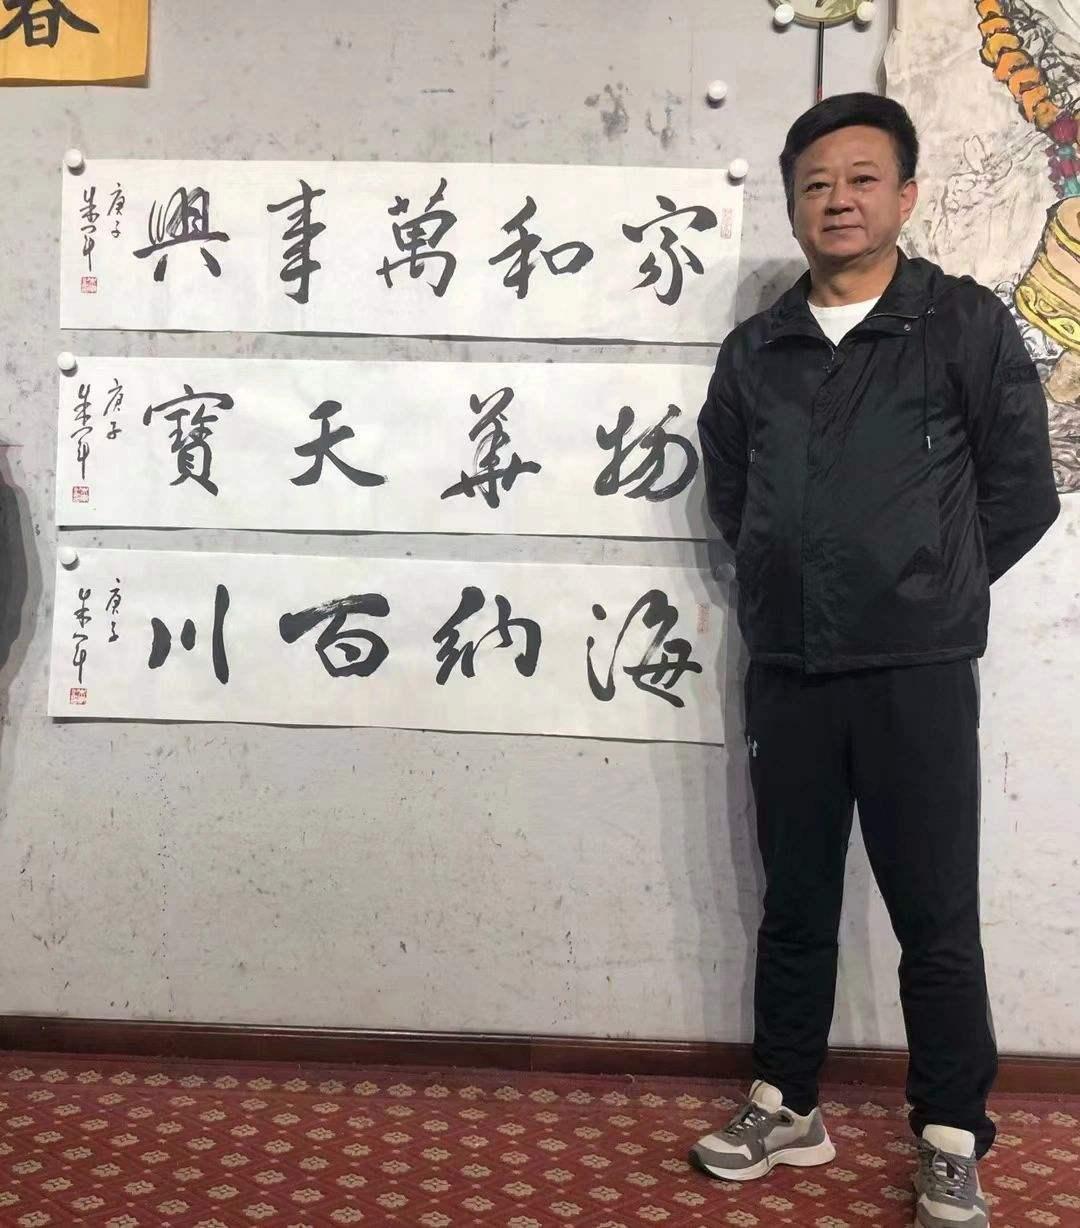 春
家和萬事興
庚子
朱軍
物華天寶
庚子
朱軍
海納百川
庚子
朱軍